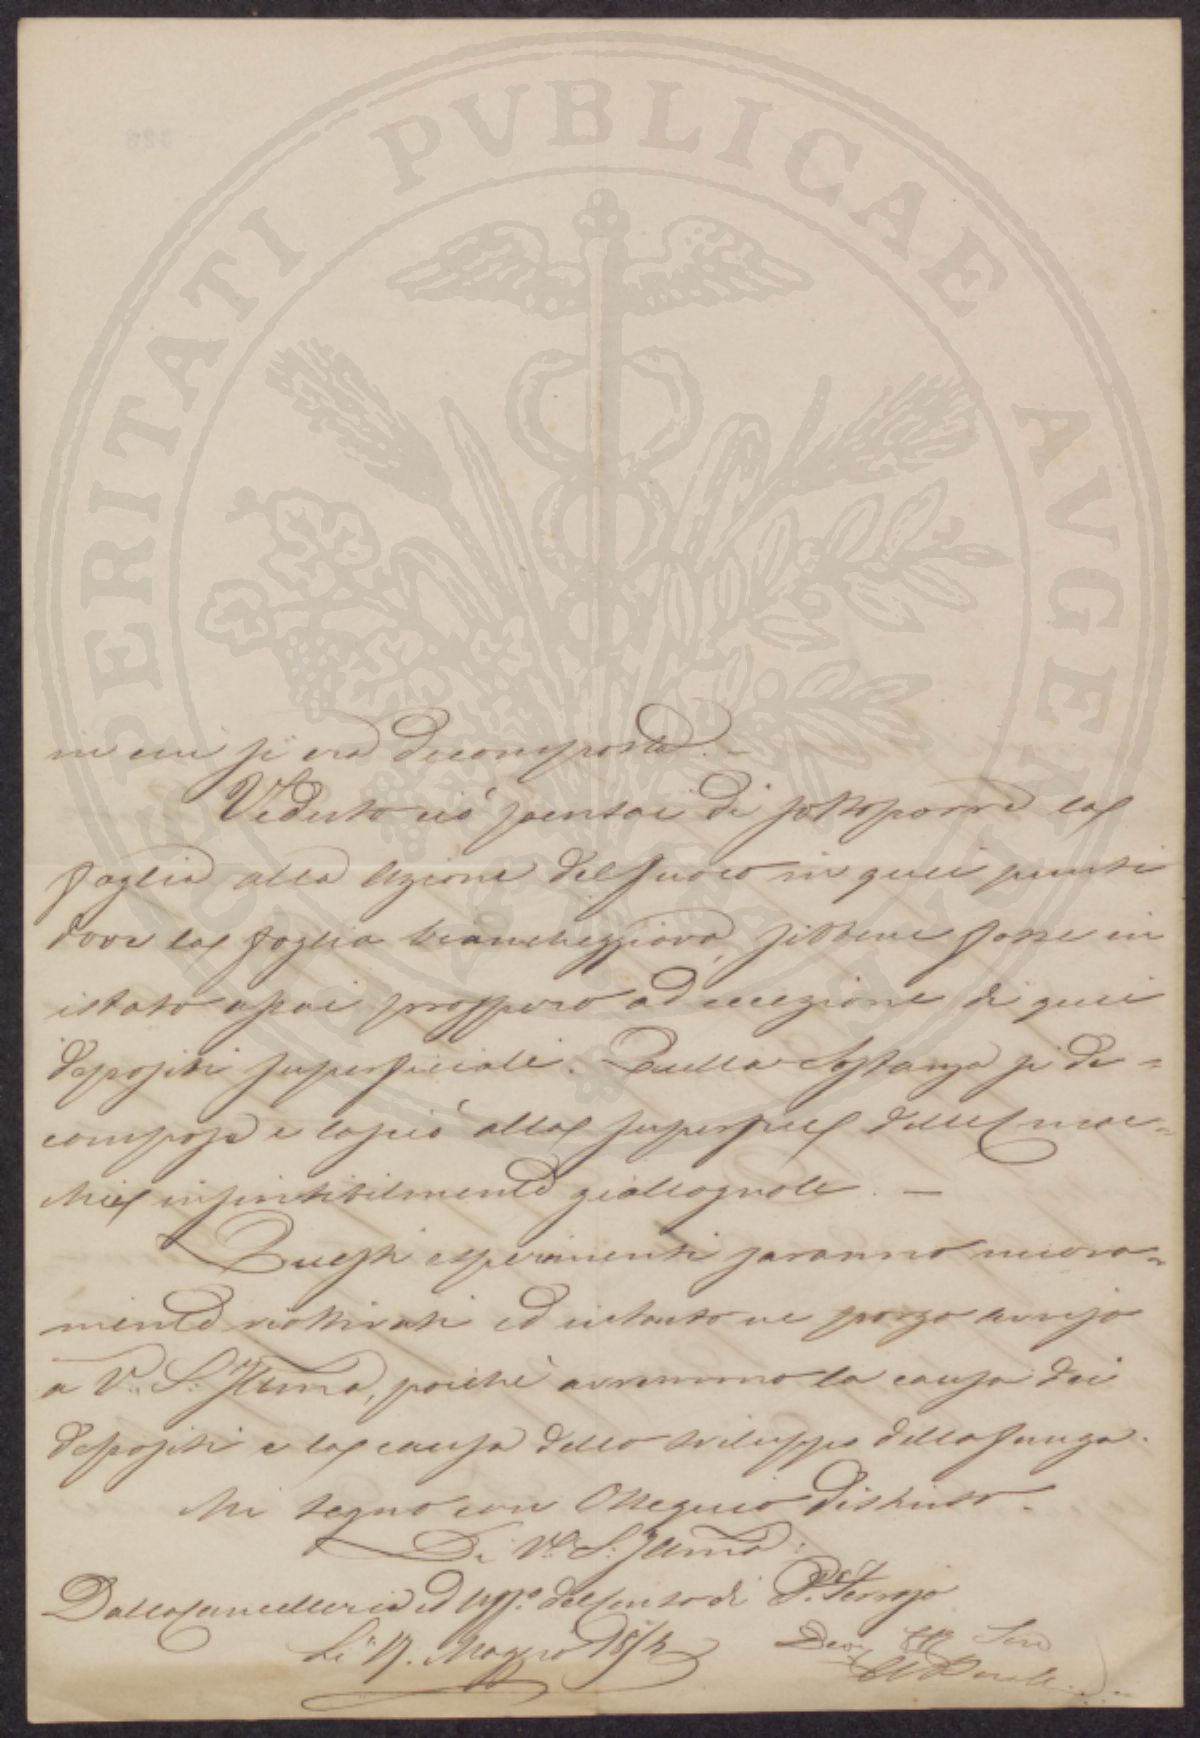 PROSPERITATI PVBLICAE AVGENDAE
in cui si era decomposta. —
Veduto ciò pensai di sottoporre la
foglia alla azione del fuoco in quei punti
dove la foglia biancheggiava, sibbene fosse in
istato assai prospero ad eccezione di quei
depositi superficiali. Quella sostanza si de=
compose e lasciò alla superficie delle mac=
chie insensibilmente giallognole. —
Questi esperimenti saranno nuova=
mente riattivati ed intanto ne porgo avviso
a V. S. Illma, poichè avremmo la causa dei
depositi e la causa dello sviluppo della funga.
Mi segno con Ossequio distinto.
Di V. S. Illma:
Dalla Cancelleria ed Uffo. del Censo di
Li 17. Maggio
Devmo